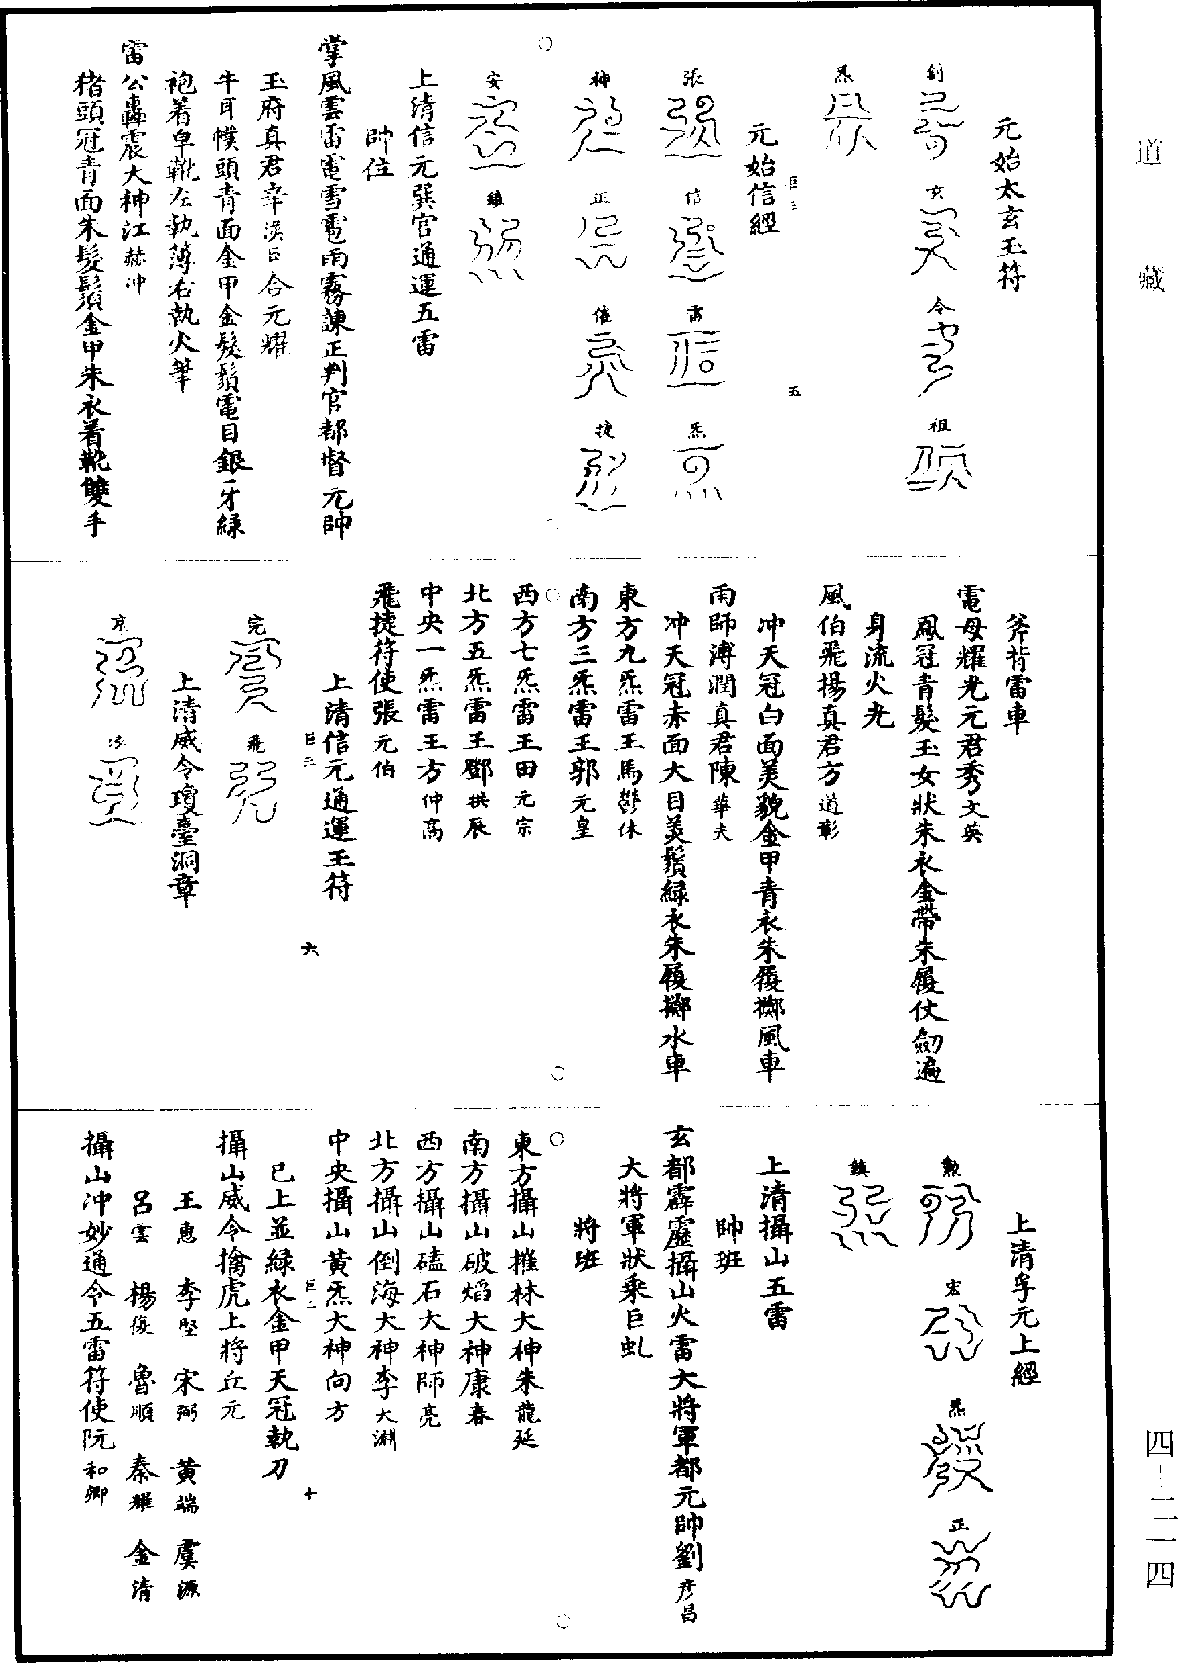 道藏
元始太玄玉符
創 玄 令 祖
炁
元始信經
張 信 雷 炁
神 正 催 捷
安 鎮
上清信元巽宮通運五雷
帥位
掌風雲雷電雪雹雨霧諫正判官都督元帥
玉府真君辛漢臣合元耀
牛耳幞頭青面金甲金髮鬚電目銀牙綠
袍着皁靴左執薄右執火筆
雷公轟震大神江赫冲
猪頭冠青面朱髮鬚金甲朱衣着靴雙手
斧背雷車
電母耀光元君秀文英
鳳冠青髮玉女狀朱衣金帶朱履仗劒遍
身流火光
風伯飛揚真君方道彰
冲天冠白面美貌金甲青衣朱履擲風車
雨師溥潤真君陳華夫
冲天冠赤面大目美鬚綠衣朱履擲水車
東方九炁雷王馬鬱休
南方三炁雷王郭元皇
西方七炁雷王田元宗
北方五炁雷王鄧拱辰
中央一炁雷王方仲高
飛捷符使張元伯
上清信元通運玉符
完 飛
上清威令瓊臺洞章
京
上清孚元上經
勲 宏 炁 正
鎮
上清攝山五雷
帥班
玄都霹靂攝山火雷大將軍都元帥劉彦昌
大將軍狀乘巨虬
將班
東方攝山摧林大神朱龍延
南方攝山破焰大神康春
西方攝山磕石大神師亮
北方攝山倒海大神李大淵
中央攝山黃炁大神向方
已上並綠衣金甲天冠執刀
攝山威令擒虎上將丘元
王惠 李堅 宋弼 黃端 虞源
呂雲 楊俊 魯順 秦耀 金清
攝山冲妙通令五雷符使阮和卿
五
六
十
四-二一四